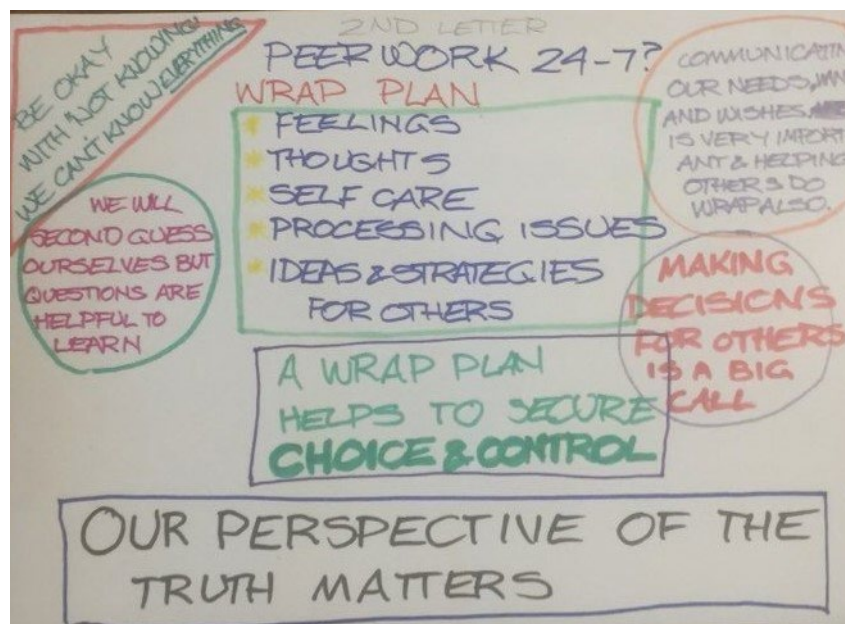 2ND LETTER
PEER WORK 24-7?
WRAP PLAN
BE OKAY
WITH "NOT KNOWING"
WE CAN'T KNOW EVERYTHING
* FEELINGS
* THOUGHTS
* SELF CARE
* PROCESSING ISSUES
* IDEAS & STRATEGIES
FOR OTHERS
COMMUNICATIN
OUR NEEDS,
AND WISHES
IS VERY IMPORT
ANT & HELPING
OTHERS DO
WRAP ALSO.
WE WILL
SECOND GUESS
OURSELVES BUT
QUESTIONS ARE
HELPFUL TO
LEARN
MAKING
DECISIONS
FOR OTHERS
IS A BIG
CALL
A WRAP PLAN
HELPS TO SECURE
CHOICE & CONTROL
OUR PERSPECTIVE OF THE
TRUTH MATTERS